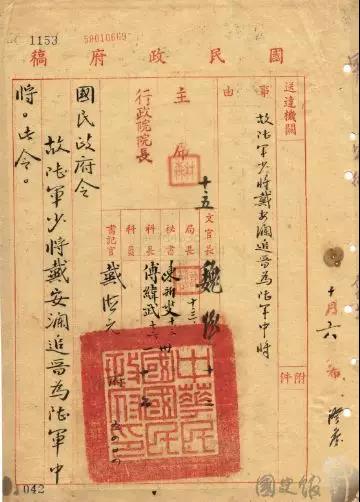 1153
58010669
國民政府稿
送達機關
事由
故陸軍少將戴安瀾追晉為陸軍中將
附件
主席
行政院院長
十五
文官長
局長
秘書
科長
科員
書記官
魏
傅緯武
戴
十月六
國民政府令
故陸軍少將戴安瀾追晉為陸軍中
將。此令。
中華民
國國民
政府印
042
國史館